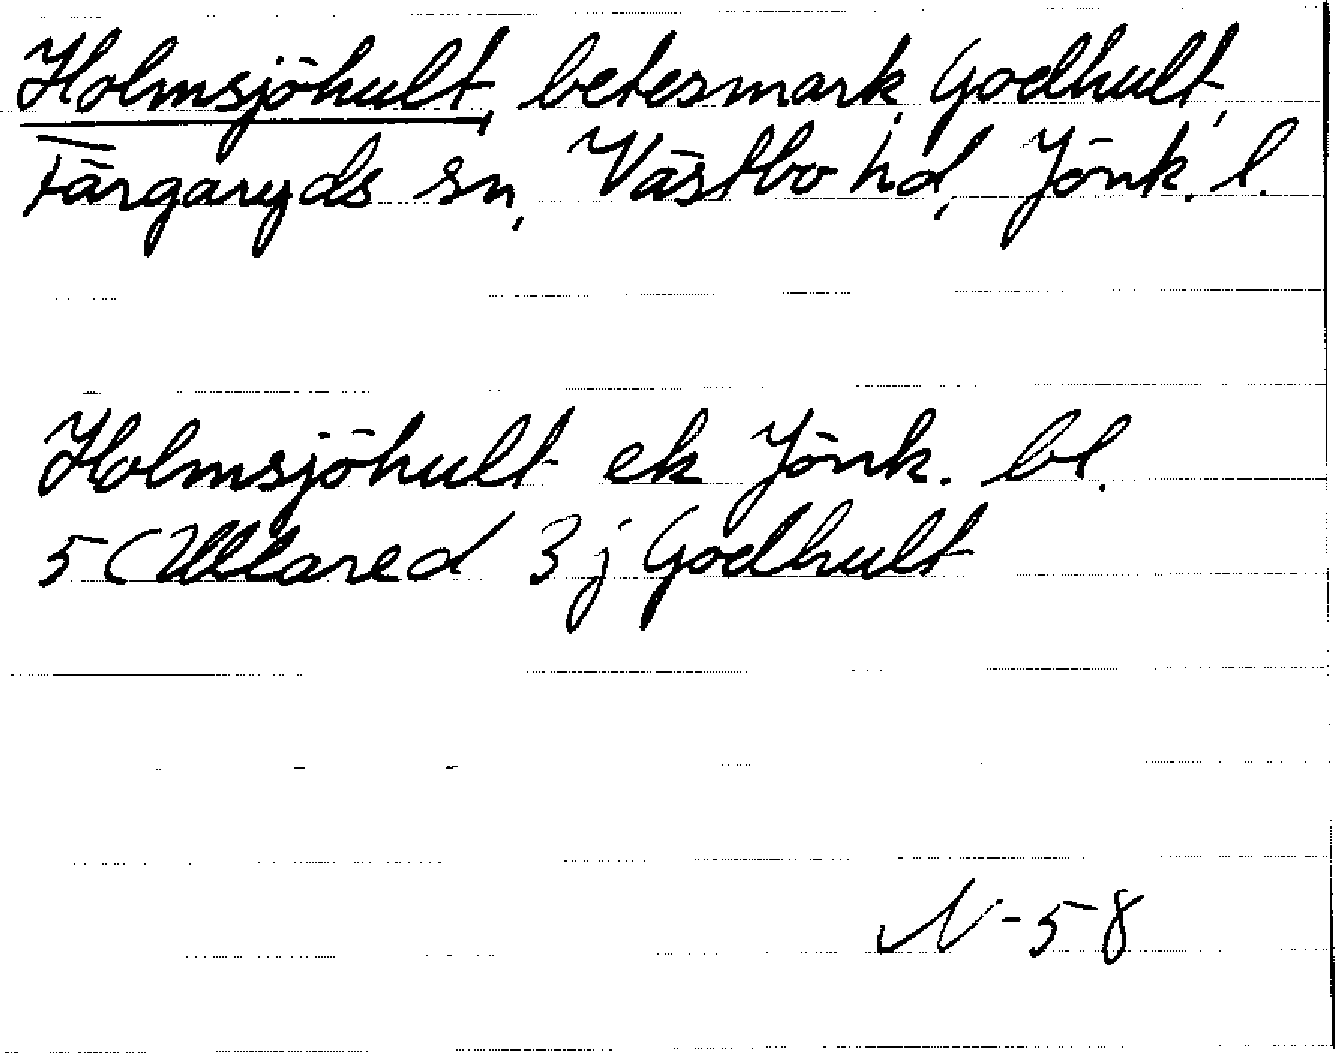 Holmsjöhult, betesmark, Godhult,
Färgaryds sn, Västbo hd, Jönk. l.
Holmsjöhult ek Jönk. bl.
5 (Ullared 3 j Godhult
N-58